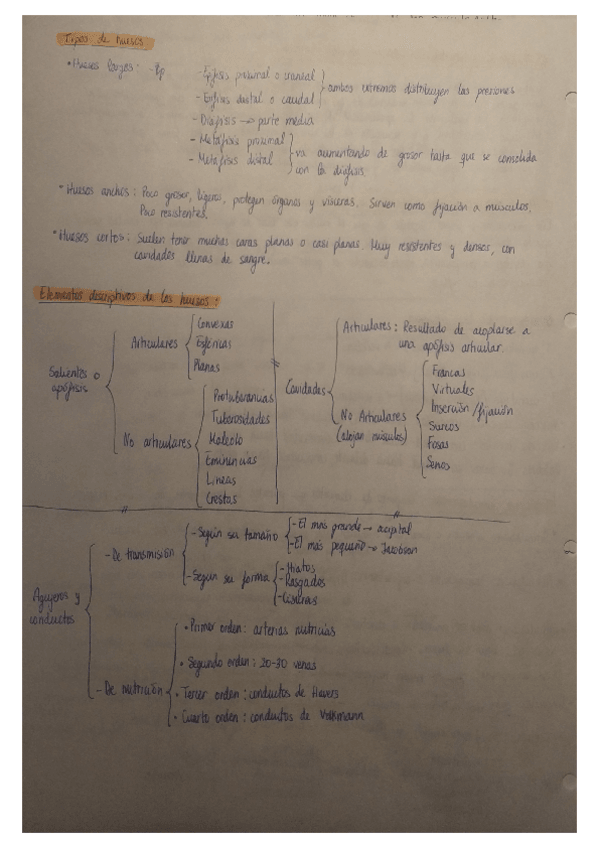 Tipos de huesos
• Huesos largos: - Ep
- Epífisis proximal o craneal
- Epífisis distal o caudal
ambos extremos distribuyen las presiones
- Diáfisis → parte media
- Metáfisis proximal
- Metáfisis distal
va aumentando de grosor hasta que se consolida
con la diáfisis.
• Huesos anchos: Poco grosor, ligeros, protegen órganos y vísceras. Sirven como fijación a músculos.
Poco resistentes.
• Huesos cortos: Suelen tener muchas caras planas o casi planas. Muy resistentes y densos, con
cavidades llenas de sangre.
Elementos descriptivos de los huesos:
Salientes o
apófisis
Articulares
Convexas
Esféricas
Planas
No articulares
Protuberancias
Tuberosidades
Maleolo
Eminencias
Líneas
Crestas
Cavidades
Articulares: Resultado de acoplarse a
una apófisis articular.
No Articulares
(alojan músculos)
Francas
Virtuales
Inserción/fijación
Surcos
Fosas
Senos
Agujeros y
conductos
- De transmisión
- Según su tamaño
- El más grande → occipital
- El más pequeño → Jacobson
- Según su forma
- Hiatos
- Rasgados
- Cisuras
- De nutrición
• Primer orden: arterias nutricias
• Segundo orden: 20-30 venas
• Tercer orden: conductos de Havers
• Cuarto orden: conductos de Volkmann